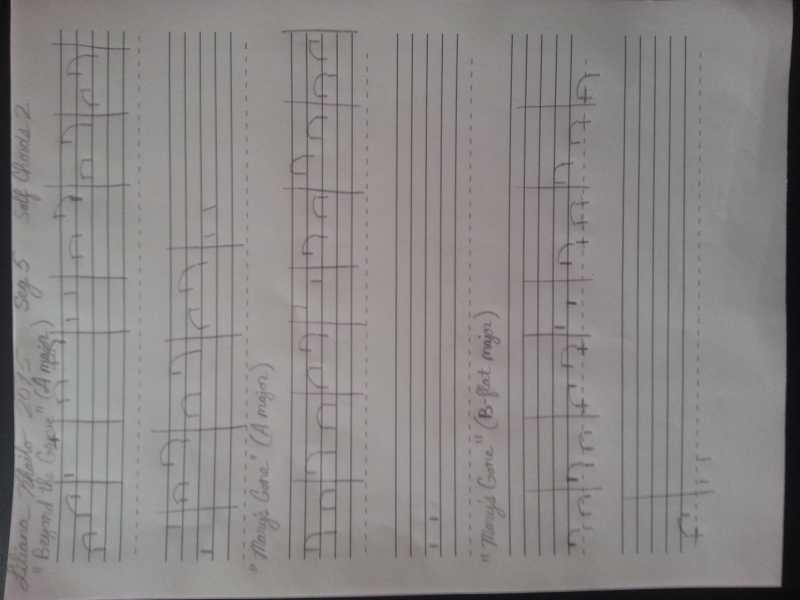 Liliana Seg 5 Self Chords 2
"Beyond the Grave" (A major)
"Mary's Gone" (A major)
"Mary's Gone" (B-flat major)